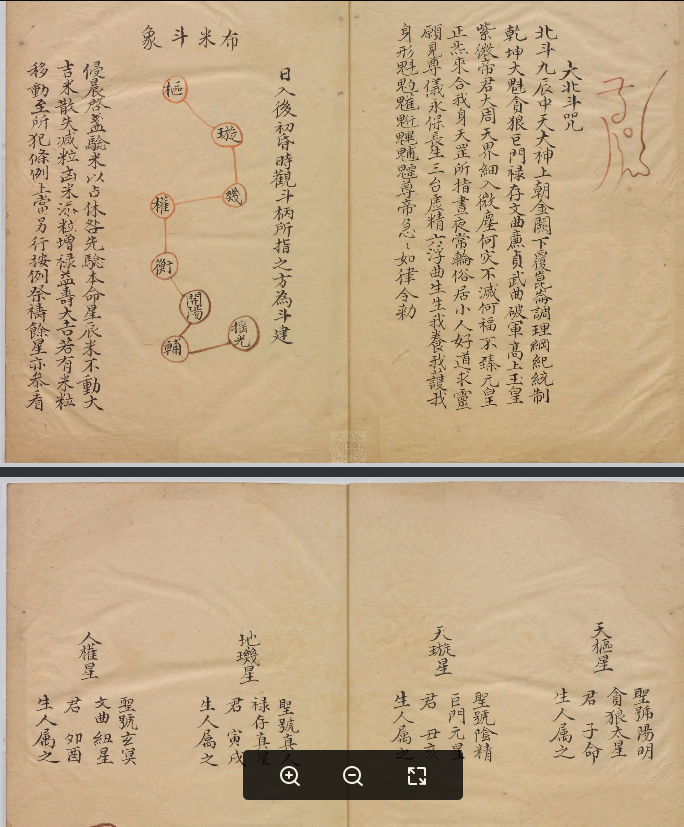 大北斗咒
北斗九辰中天大神上朝金闕下覆崑崙調理綱紀統制
乾坤大魁貪狼巨門禄存文曲亷貞武曲破軍高上玉皇
紫微帝君大周天界細入微塵何灾不滅何福不臻元皇
正炁來合我身天罡所指晝夜常輪俗居小人好道求靈
願見尊儀永保長生三台虚精六浮曲生生我養我護我
身形魁尊帝急〻如律令勑
布米斗象
日入後初昏時觀斗柄所指之方為斗建
樞
璇
幾
權
衡
開陽
輔
揺光
侵晨啓盖驗米以占休咎先驗本命星辰米不動大
吉米散失减粒凶米添粒増禄益壽大吉若有米粒
移動至所犯條例上當另行按例祭禱餘星亦叅看
天樞星
聖號陽明
貪狼太星
君 子命
生人属之
天璇星
聖號隂精
巨門元星
君 丑亥
生人属之
地璣星
聖號真人
禄存真星
君 寅戌
生人属之
人權星
聖號玄冥
文曲紐星
君 卯酉
生人属之